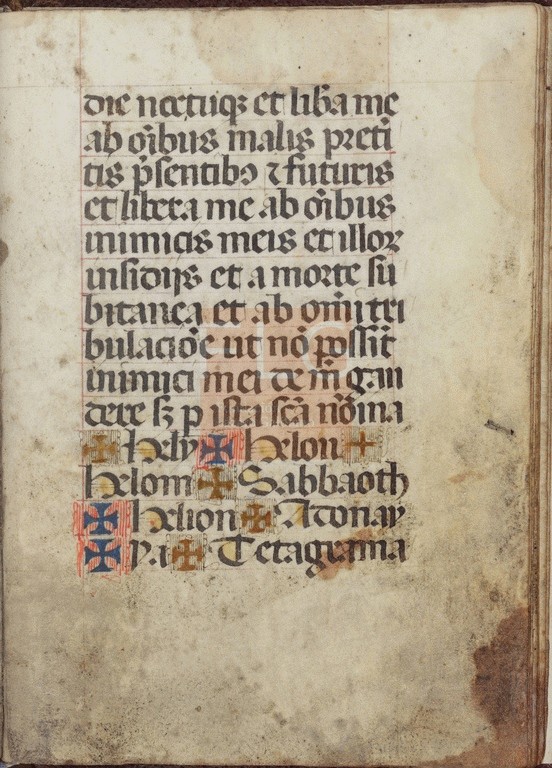 die noctuqꝫ et lib̃a me
ab oı̃bus malis preti
tis p̃sentibꝯ ⁊ futuris
et libera me ab oı̃bus
inimicis meis et illoꝝ
insidijs et a morte su
bitanea et ab om̃i tri
bulacio͂e ut no͂ possı̃t
inimici mei de m̃ gau
dere sꝫ ꝑ ista sc̃a no͂ina
✠ hely ✠ helon ✠
helom ✠ Sabbaoth
✠ helion ✠ Adonay
✠ ya ✠ Tetagrama